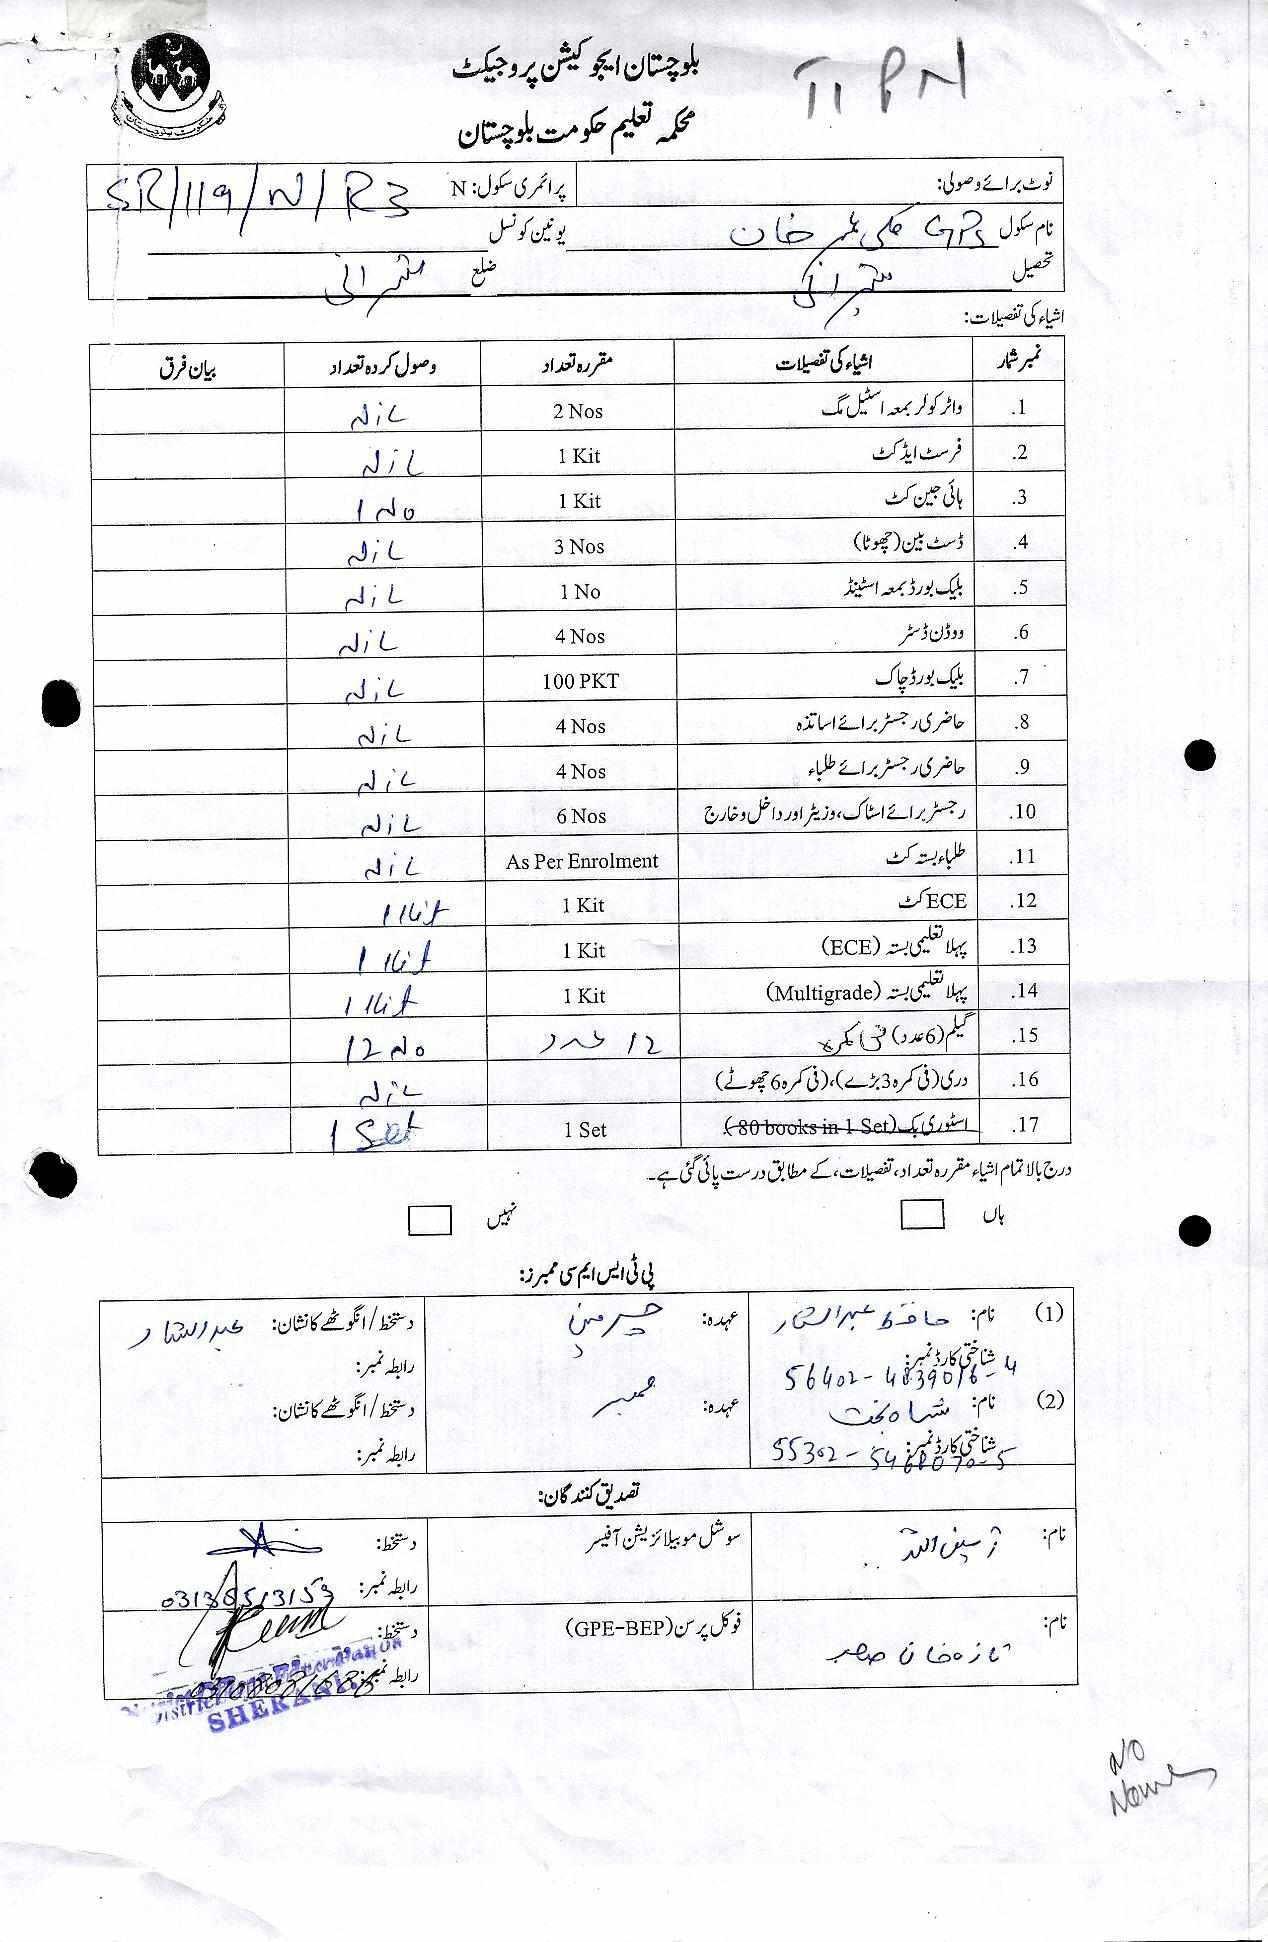 بلوچستان ایجوکیشن پروجیکٹ
محکمہ تعلیم حکومت بلوچستان
نوٹ برائے وصولی: پرائمری سکول: N SR/119/N/R3
نام سکول GPS خان یونین کونسل
تحصیل شیرانی ضلع شیرانی
اشیاء کی تفصیلات:
نمبر شمار اشیاء کی تفصیلات مقررہ تعداد وصول کردہ تعداد بیان فرق
1. واٹر کولر بمعہ اسٹیل مگ 2 Nos Nil
2. فرسٹ ایڈ کٹ 1 Kit Nil
3. ہائی جین کٹ 1 Kit 1 No
4. ڈسٹ بین (چھوٹا) 3 Nos Nil
5. بلیک بورڈ بمعہ اسٹینڈ 1 No Nil
6. ووڈن ڈسٹر 4 Nos Nil
7. بلیک بورڈ چاک 100 PKT Nil
8. حاضری رجسٹر برائے اساتذہ 4 Nos Nil
9. حاضری رجسٹر برائے طلباء 4 Nos Nil
10. رجسٹر برائے اسٹاک، وزیٹر اور داخل و خارج 6 Nos Nil
11. طلباء بستہ کٹ As Per Enrolment Nil
12. ECE کٹ 1 Kit 1 Kit
13. پہلا تعلیمی بستہ (ECE) 1 Kit 1 Kit
14. پہلا تعلیمی بستہ (Multigrade) 1 Kit 1 Kit
15. گیلم (6 عدد) فی کمرہ 12 عدد 12 No
16. دری (فی کمرہ 3 بڑے)، (فی کمرہ 6 چھوٹے) Nil
17. اسٹوری بک (80 books in 1 Set) 1 Set 1 Set
درج بالا تمام اشیاء مقررہ تعداد، تفصیلات، کے مطابق درست پائی گئی ہے۔
ہاں نہیں
پی ٹی ایس ایم سی ممبرز:
(1) نام: حافظ عبدالستار عہدہ: چیرمین دستخط/انگوٹھے کا نشان: عبدالستار
شناختی کارڈ نمبر: 56402-4839016-4 رابطہ نمبر:
(2) نام: شاہ بخت عہدہ: ممبر دستخط/انگوٹھے کا نشان:
شناختی کارڈ نمبر: رابطہ نمبر:
تصدیق کنندگان:
نام: سوشل موبیلائزیشن آفیسر دستخط:
رابطہ نمبر:
نام: تازہ خان فوکل پرسن (GPE-BEP) دستخط:
رابطہ نمبر:
District Education
SHERANI
No